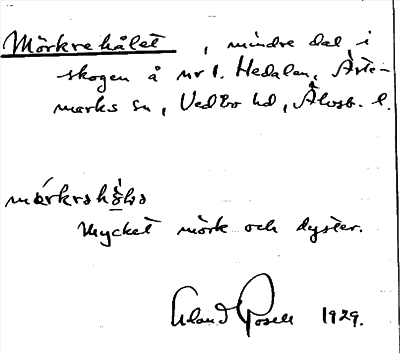 Mörkrehålet, mindre dal i
skogen å nr 1. Hedalen,Årte-
marks sn, Vedbo hd, Älvsb. l.
Mycket mörk och dyster.
Erland Rosell 1929.